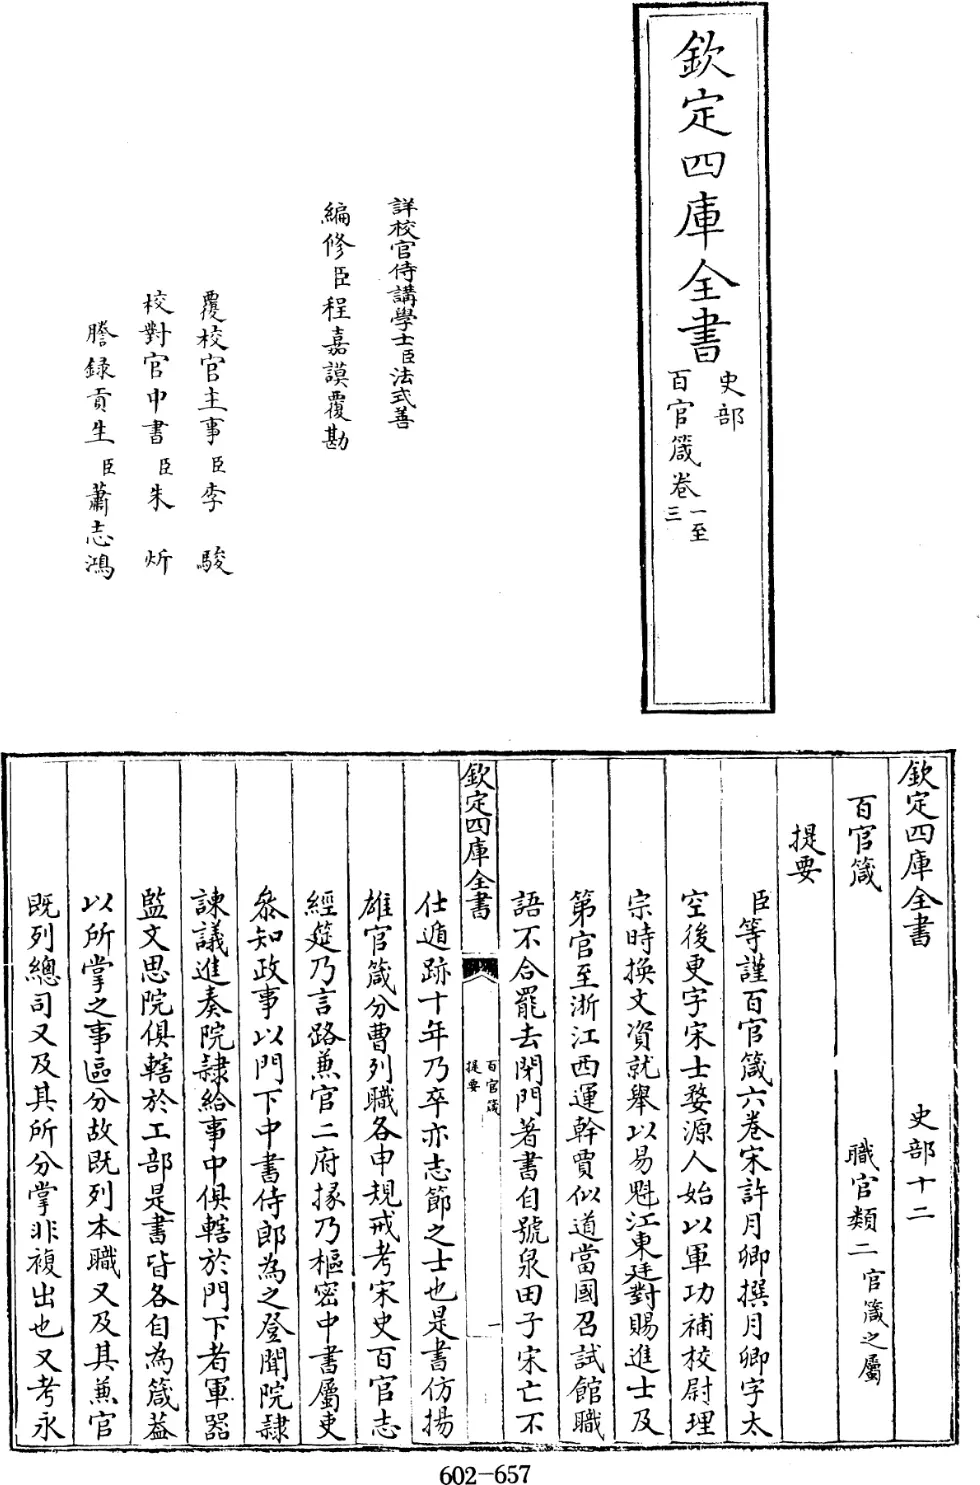 欽定四庫全書
史部
百官箴卷一至三
詳校官侍講學士臣法式善
編修臣程嘉謨覆勘
覆校官主事臣李駿
校對官中書臣朱炘
謄録貢生臣蕭志鴻
欽定四庫全書　史部十二
百官箴　職官類二官箴之屬
提要
臣等謹百官箴六卷宋許月卿撰月卿字太
空後更字宋士婺源人始以軍功補校尉理
宗時換文資就舉以易魁江東廷對賜進士及
第官至浙江西運幹賈似道當國召試館職
語不合罷去閉門著書自號泉田子宋亡不
欽定四庫全書
百官箴
提要
一
仕遁跡十年乃卒亦志節之士也是書仿揚
雄官箴分曹列職各申規戒考宋史百官志
經筵乃言路兼官二府掾乃樞密中書屬吏
叅知政事以門下中書侍郎為之登聞院隸
諫議進奏院隸給事中俱轄於門下者軍器
監文思院俱轄於工部是書皆各自為箴葢
以所掌之事區分故既列本職又及其兼官
既列總司又及其所分掌非複出也又考永
602-657